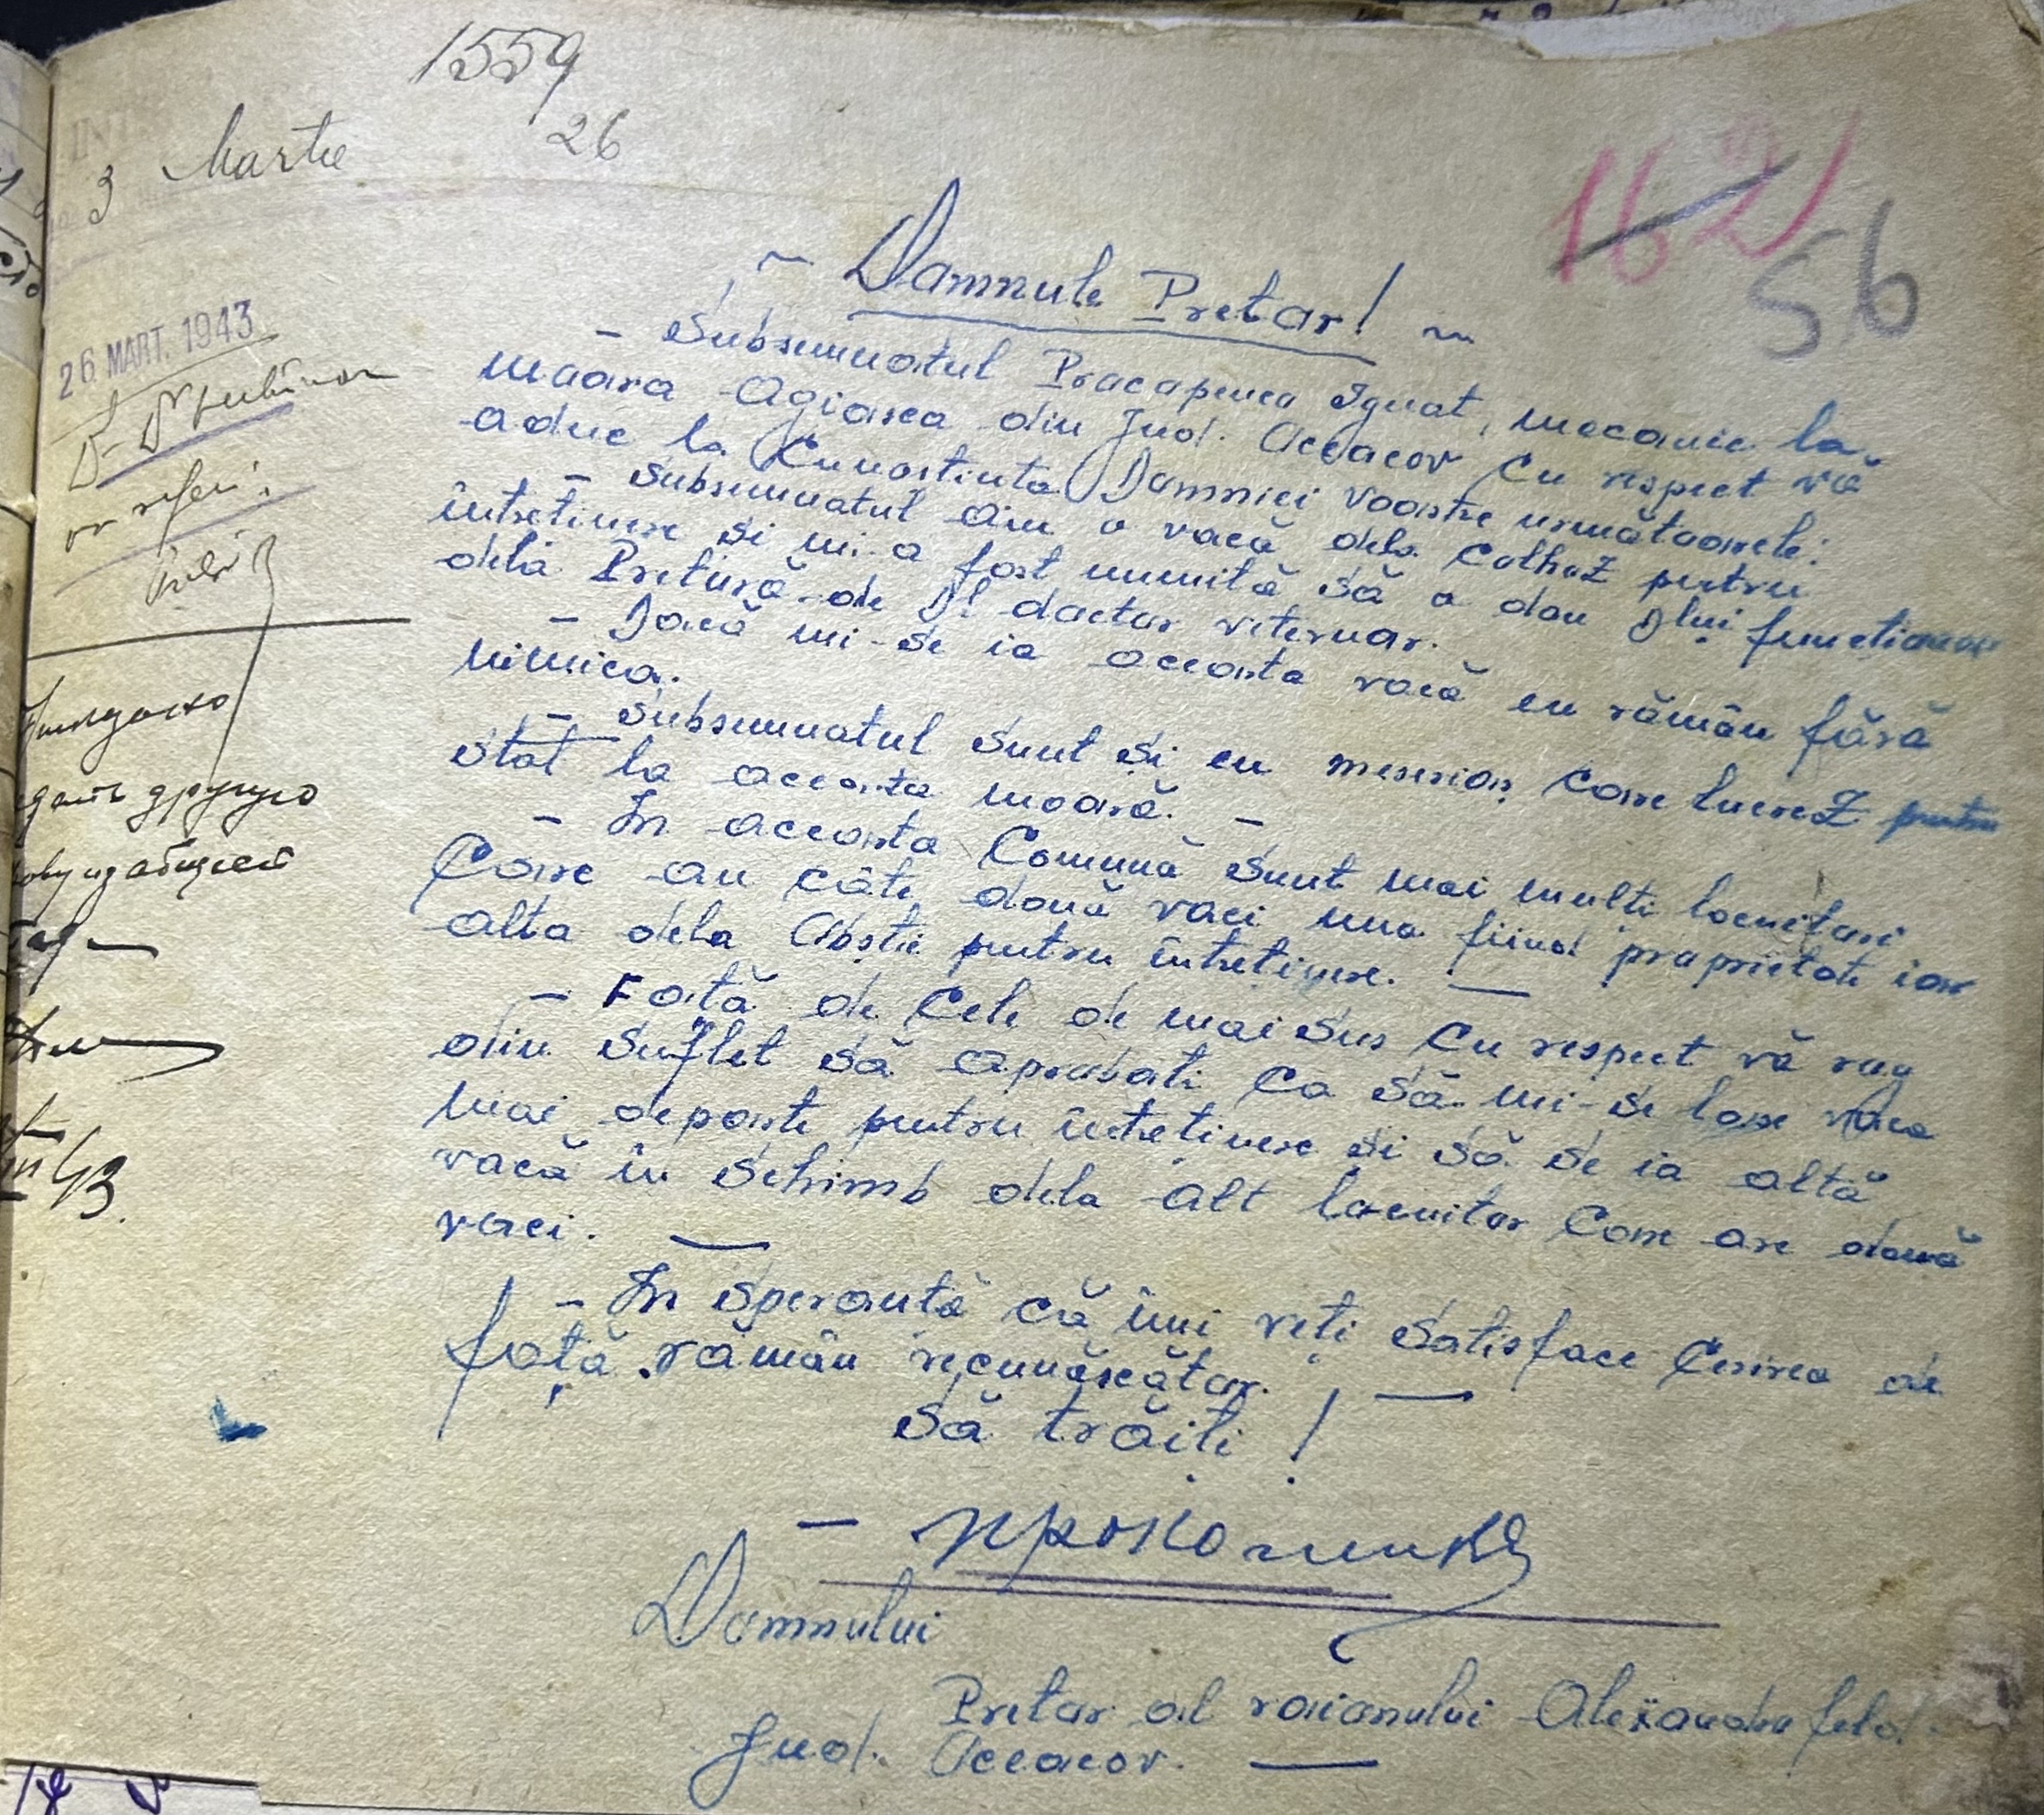 1559
26
3 Martie
162
56
26. MART. 1943
~ Domnule Pretor! ~
- Subsemnatul Procopenco Ignat, mecanic la
moara Agiasca din Jud. Oceacov cu respect vă
aduc la Cunostinta Domniei voastre următoarele:
- Subsemnatul am o vacă dela Colhoz pentru
întretinere si mi-a fost numită să o dau Dlui functionar
dela Pretură de Dl doctor veternar.
- Dacă mi-se ia aceasta vacă eu rămân fără
nimica.
- Subsemnatul sunt și eu meserias care lucrez pentru
stat la aceasta moară. -
- In aceasta Comună sunt mai multi locuitori
Care au câte două vaci una fiind proprietate iar
alta dela Obștie pentru întretinere. —
- Fată de Cele de mai sus Cu respect vă rog
din suflet să aprobati ca să mi-se lase vaca
mai departe pentru întreținere si să se ia altă
vacă in schimb dela alt locuitor Care are două
vaci. —
- In sperantă că îmi veti satisface Cerirea de
față rămân recunăscător. —
Să trăiti!
- Прокопенко
Domnului
Pretor al raionului Alexandrufeld
Jud. Oceacov. —
or referi.
дать другую
43.